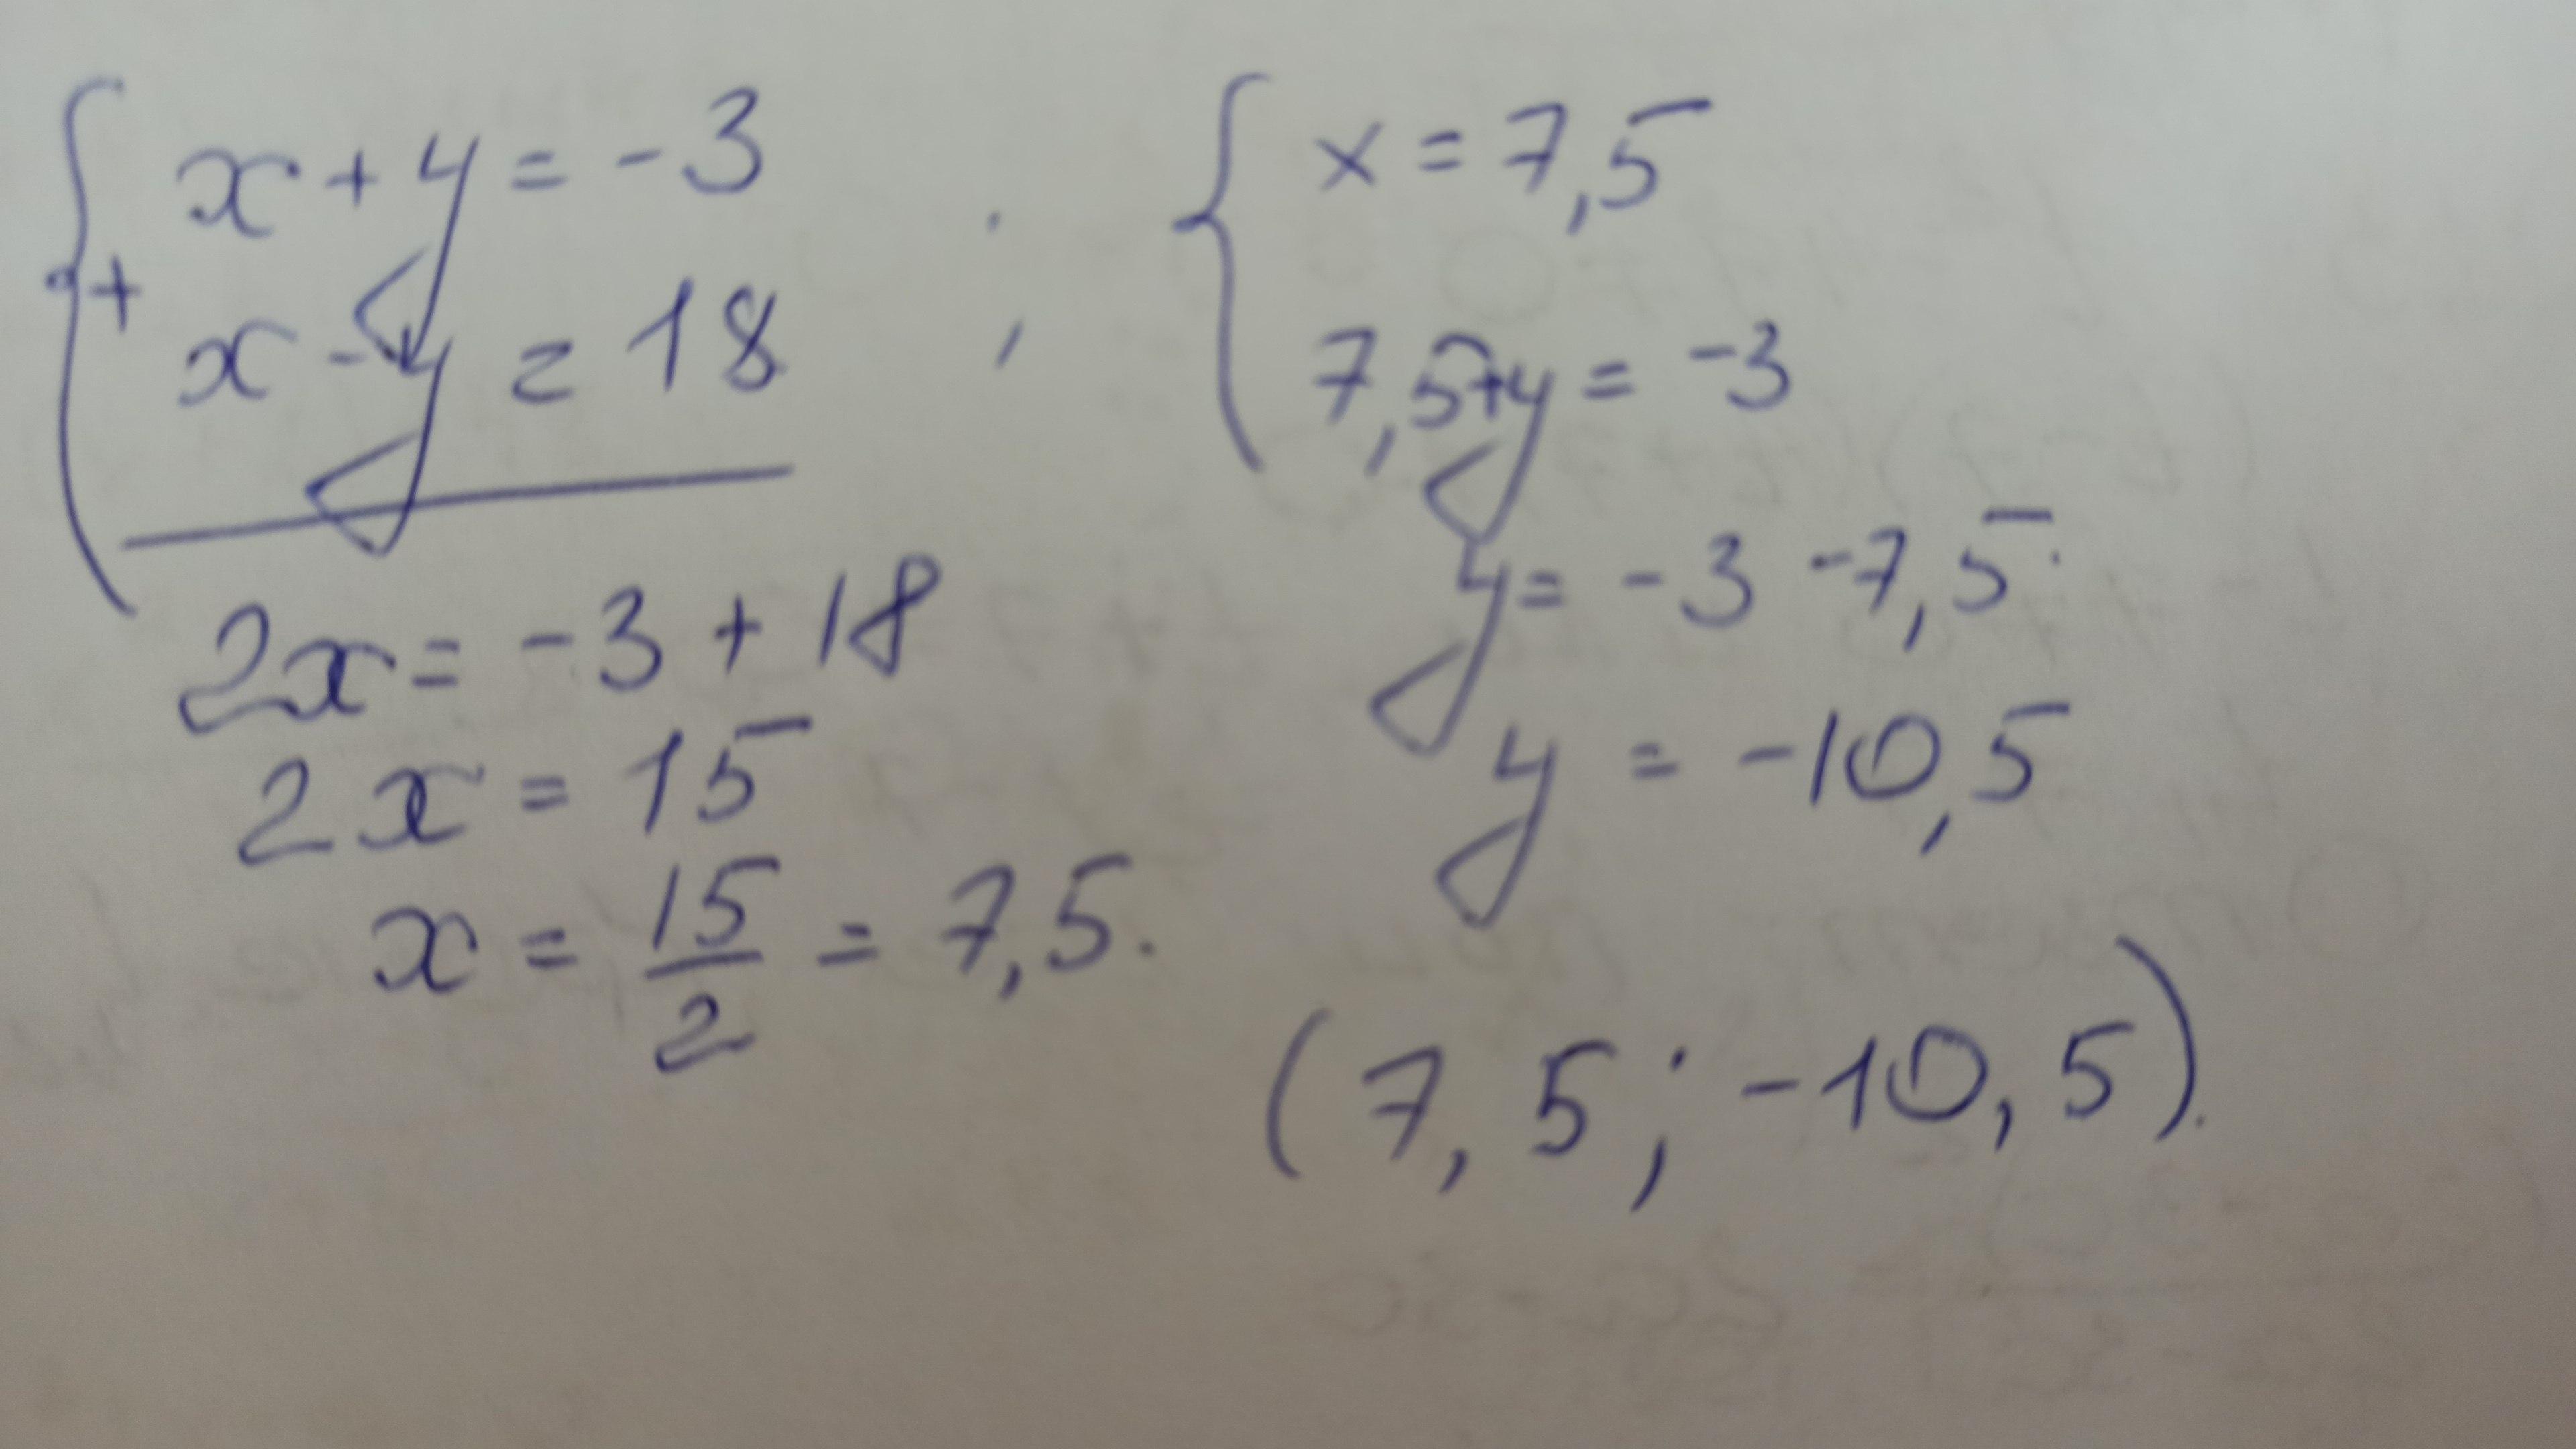 { x + y = -3 ;
+ x - y = 18
2x = -3 + 18
2x = 15
x = 15/2 = 7,5.
{ x = 7,5
7,5+y = -3
y = -3 -7,5.
y = -10,5
(7,5; -10,5).